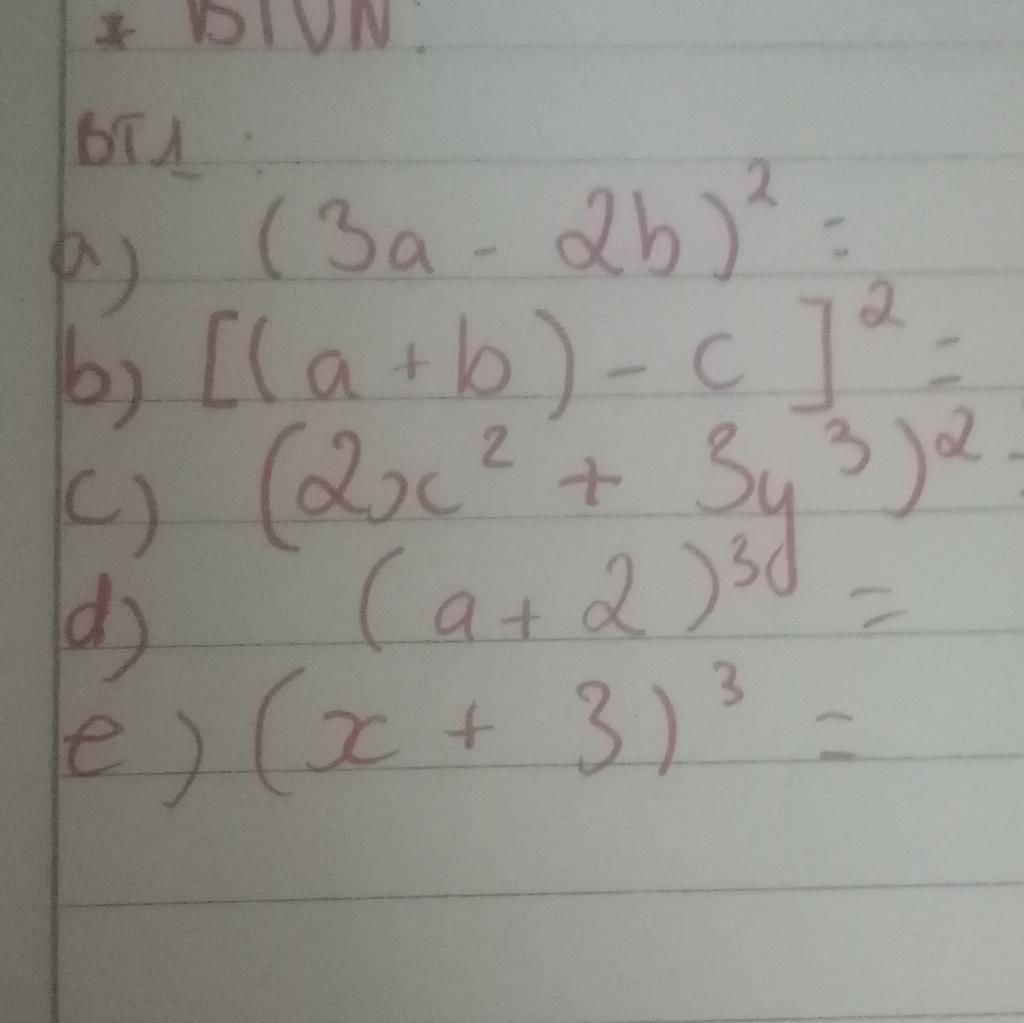 * BTVN.
BT1:
a) (3a - 2b)² =
b) [(a + b) - c]² =
c) (2x² + 3y³)² =
d) (a + 2)³ =
e) (x + 3)³ =